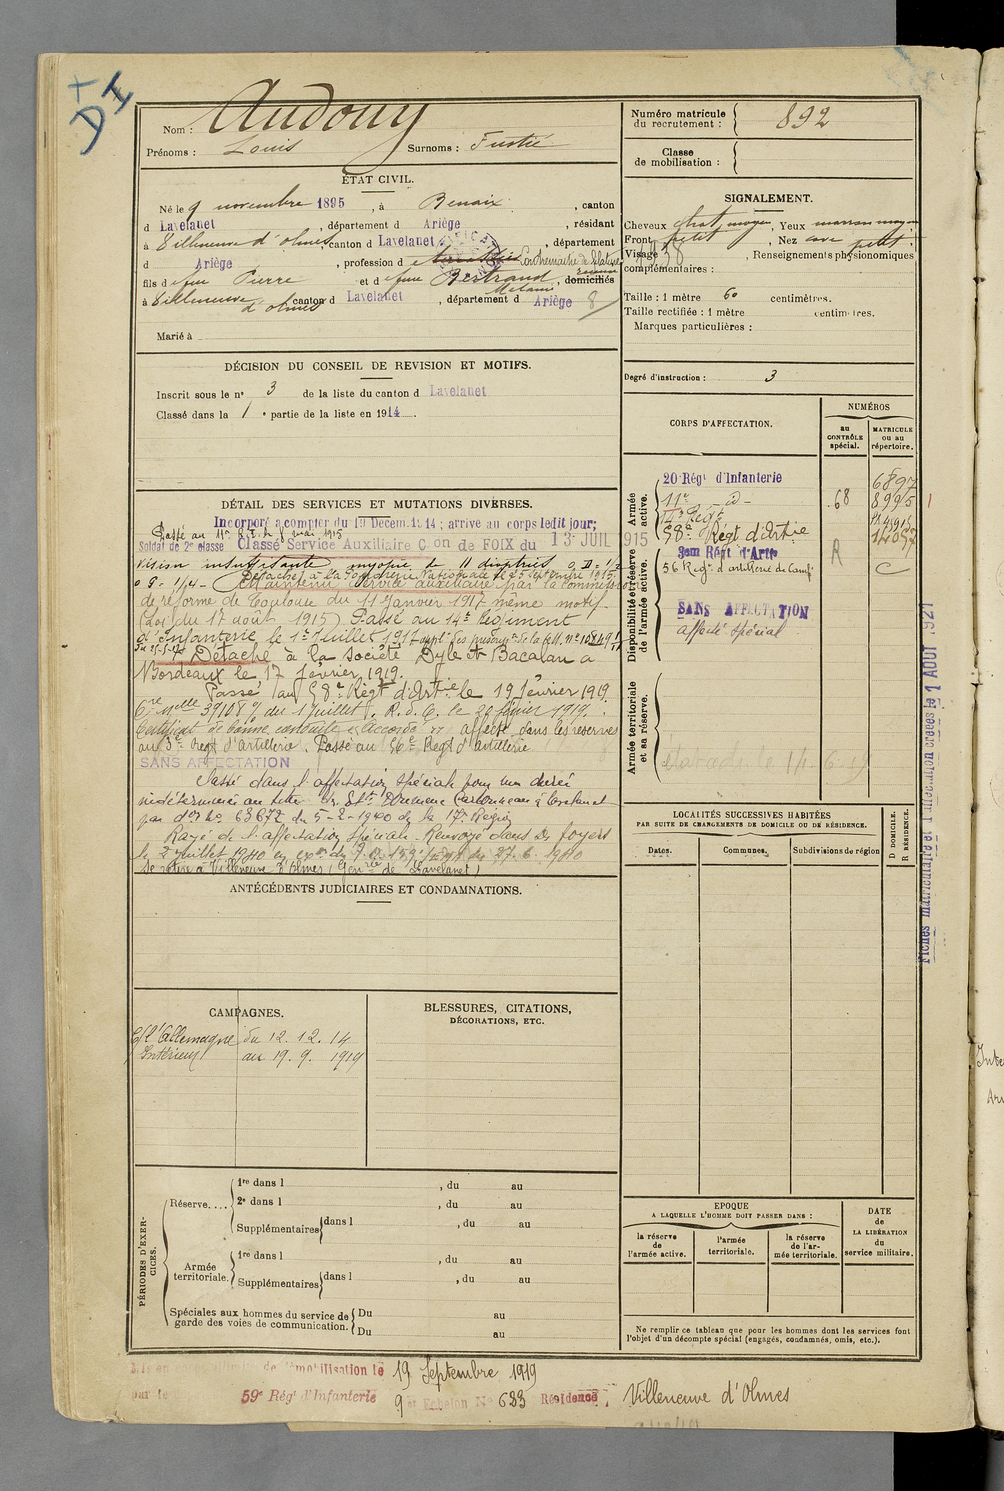 DI
Nom : Audouy
Prénoms : Louis Surnoms :
Numéro matricule du recrutement : 892
Classe de mobilisation :
ÉTAT CIVIL.
Né le 9 novembre 1895, à Benaix, canton
d Lavelanet, département d Ariège, résidant
à Villeneuve d'olmes, canton d Lavelanet, département
d Ariège, profession d
fils d feu Pierre et d feu Bertrand, domiciliés
Mélanie
à Villeneuve d'olmes canton d Lavelanet, département d Ariège 8
Marié à
SIGNALEMENT.
Cheveux chat moyen, Yeux marron moyen
Front petit, Nez cave petit
Visage , Renseignements physionomiques
complémentaires :
1938
Taille : 1 mètre 60 centimètres.
Taille rectifiée : 1 mètre centimètres.
Marques particulières :
Degré d'instruction : 3
DÉCISION DU CONSEIL DE REVISION ET MOTIFS.
Inscrit sous le n° 3 de la liste du canton d Lavelanet
Classé dans la 1e partie de la liste en 1914.
DÉTAIL DES SERVICES ET MUTATIONS DIVERSES.
Incorporé à compter du 19 Décem. 1914 ; arrivé au corps ledit jour;
Passé au 11e R.I. le 8 mai 1915
Soldat de 2e classe Classé Service Auxiliaire Con de FOIX du 13 JUIL 1915
vision insuffisante myopie de 11 dioptries O.D = 1/2
O G = 1/4 -
Détaché à la Fonderie Nationale le 25 septembre 1915.
Maintenu service auxiliaire par la Commission
de réforme de Toulouse du 11 Janvier 1917 même motif
(Loi du 17 août 1915) Passé au 14e Régiment
d'Infanterie le 1er Juillet 1917
Détaché à la Société Dyle et Bacalan à
Bordeaux le 17 février 1919.
Passé au 58e Régt d'Artie le 19 février 1919
Certificat de bonne conduite "Accordé" affecté dans les réserves
au 3e Régt d'artillerie. Passé au 56e Régt d'artillerie
SANS AFFECTATION
Passé dans l'affectation spéciale pour une durée
indéterminée au titre
par 63672 du 5-2-1940 de la 17e Région
Rayé de l'affectation spéciale - Renvoyé dans ses foyers
le 2 Juillet 1940 du 27.6.1940
Se retire à Villeneuve d'Olmes (Genrie de Lavelanet)
CORPS D'AFFECTATION.
NUMÉROS
au CONTRÔLE spécial.
MATRICULE ou au répertoire.
Armée active.
20e Régt d'Infanterie 6897
11e - d - 68 8995
14e Régt
58e Régt d'Artie 14057
Disponibilité et réserve de l'armée active.
3em Régt d'Artie R
56 Régt d'artillerie de Camp C
SANS AFFECTATION
affecté spécial
Armée territoriale et sa réserve.
Fiches matriculaire et d'affectation créées le 1 AOUT 1921
LOCALITÉS SUCCESSIVES HABITÉES
PAR SUITE DE CHANGEMENTS DE DOMICILE OU DE RÉSIDENCE.
Dates. Communes. Subdivisions de région
D DOMICILE.
R RÉSIDENCE.
ANTÉCÉDENTS JUDICIAIRES ET CONDAMNATIONS.
CAMPAGNES.
C/ l'Allemagne du 12. 12. 14
Intérieur au 19. 9. 1919
BLESSURES, CITATIONS,
DÉCORATIONS, ETC.
PÉRIODES D'EXERCICES.
Réserve....
1re dans l , du au
2e dans l , du au
Supplémentaires dans l , du au
Armée territoriale.
1re dans l , du au
Supplémentaires dans l , du au
Spéciales aux hommes du service de garde des voies de communication.
Du au
Du au
EPOQUE
A LAQUELLE L'HOMME DOIT PASSER DANS :
la réserve de l'armée active.
l'armée territoriale.
la réserve de l'armée territoriale.
DATE de LA LIBÉRATION du service militaire.
Ne remplir ce tableau que pour les hommes dont les services font
l'objet d'un décompte spécial (engagés, condamnés, omis, etc.).
démobilisation le 19 Septembre 1919
par le 59e Régt d'Infanterie 9e Echelon N° 633 Résidence, Villeneuve d'Olmes